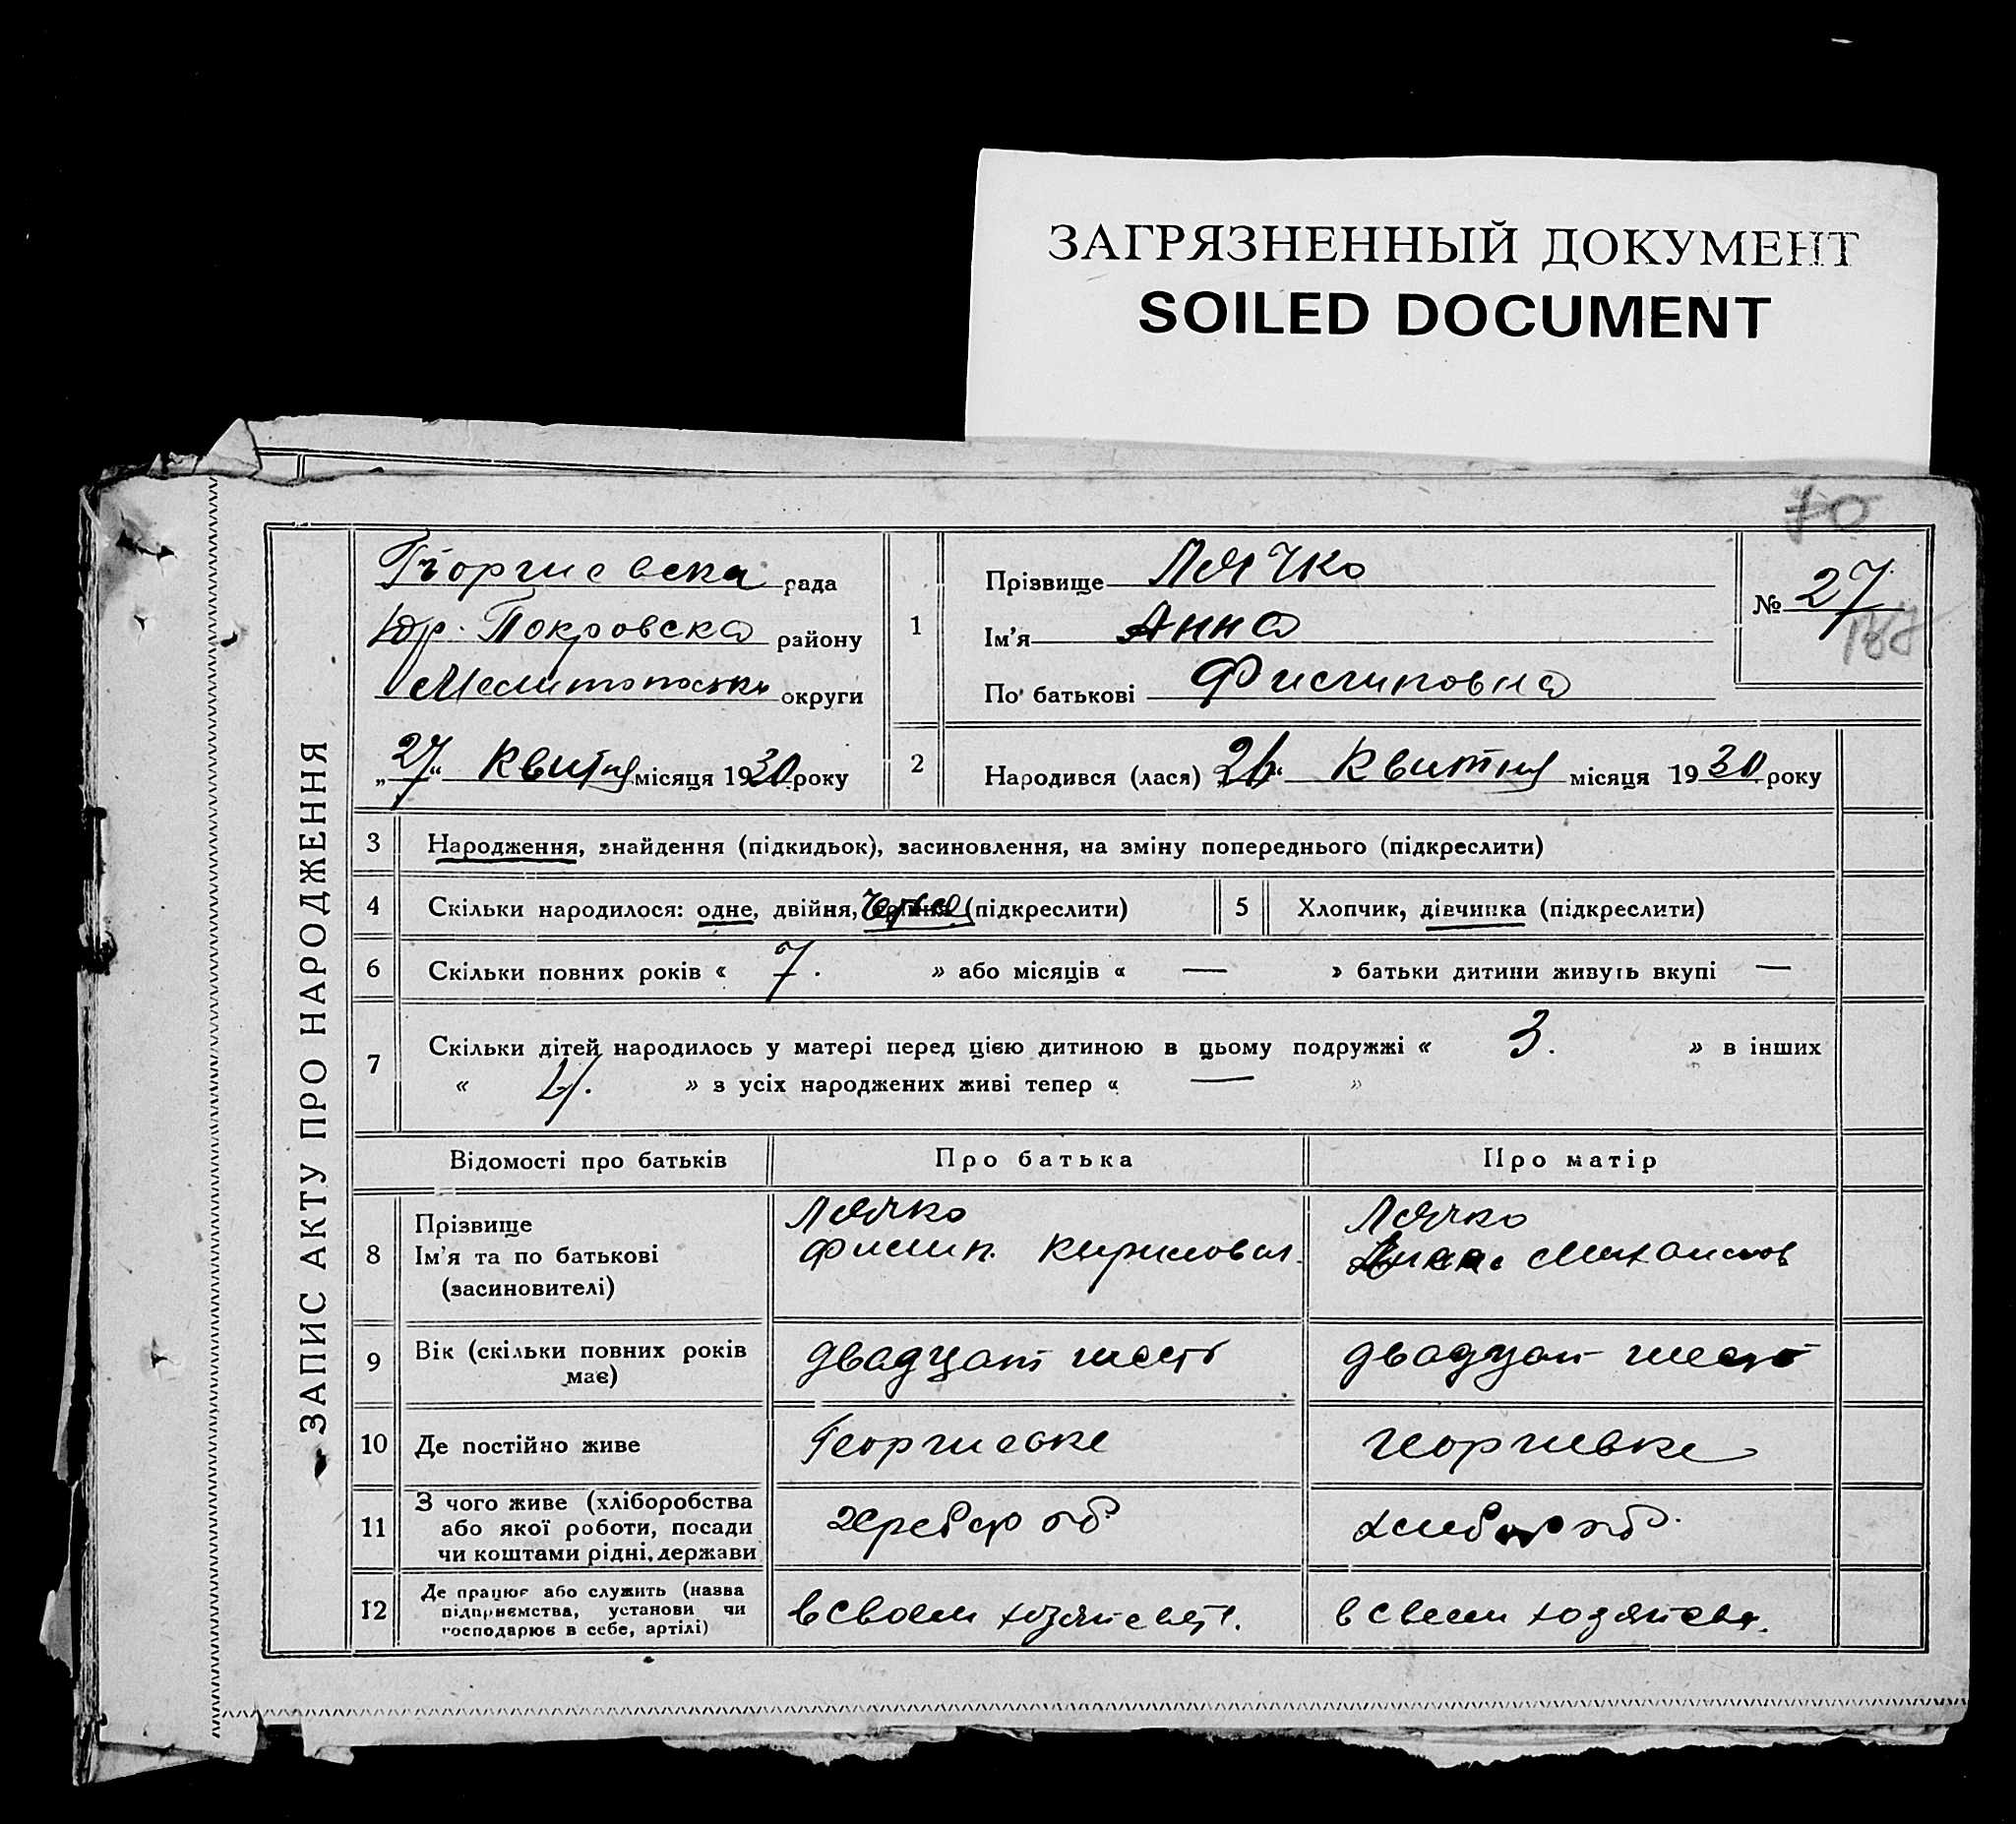 ЗАГРЯЗНЕННЫЙ ДОКУМЕНТ
SOILED DOCUMENT
70
ЗАПИС АКТУ ПРО НАРОДЖЕННЯ
рада
Покровска району
округи
„27“ Квитня місяця 1930 року
1
Прізвище Лячко
Ім'я Анна
По батькові Филиповна
№ 27
2 Народився (лася) „26“ Квитня місяця 1930 року
3 Народження, знайдення (підкидьок), засиновлення, на зміну попереднього (підкреслити)
4 Скільки народилося: одне, двійня, (підкреслити)
5 Хлопчик, дівчинка (підкреслити)
6 Скільки повних років « 7. » або місяців « — » батьки дитини живуть вкупі —
7 Скільки дітей народилось у матері перед цією дитиною в цьому подружжі « 3. » в інших
« 4. » з усіх народжених живі тепер « — »
Відомості про батьків
Про батька
Про матір
8 Прізвище
Ім'я та по батькові
(засиновителі)
Лячко
Филип
Лячко
9 Вік (скільки повних років
має)
двадцат шесть
двадцат шесть
10 Де постійно живе
Георгиевке
георгиевке
11 З чого живе (хліборобства
або якої роботи, посади
чи коштами рідні, держави
12 Де працює або служить (назва
підприємства, установи чи
господарює в себе, артілі)
в своем